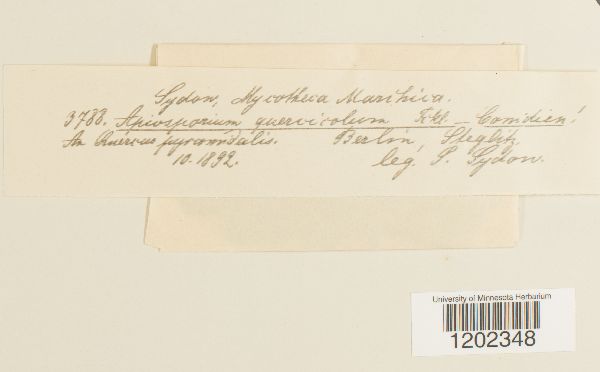 Sydow, Mycotheca Marchica.
3788. Apiosporium quercicolum Fckl. – Conidien!
An Quercus pyramidalis. Berlin, Steglitz
10.1892. leg. P. Sydow.
University of Minnesota Herbarium
1202348